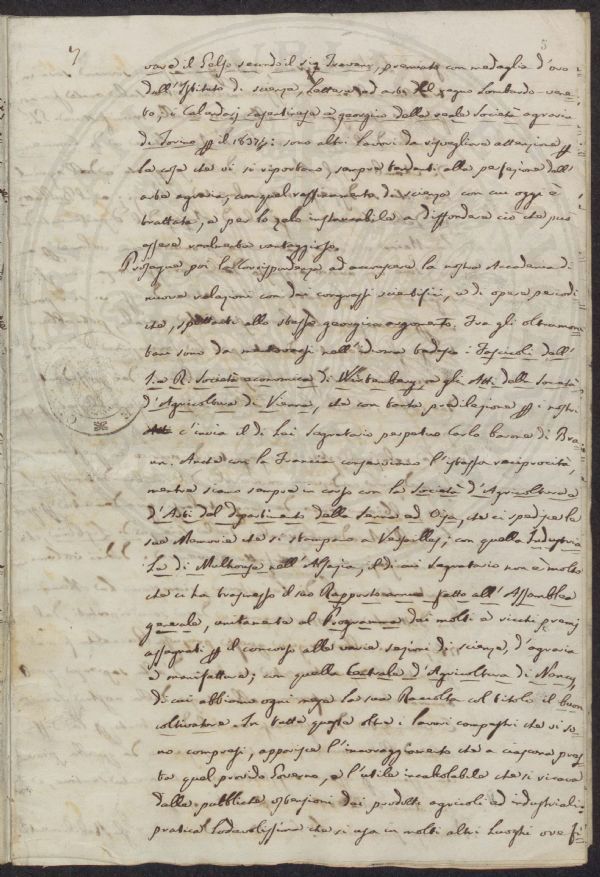 7 5
vare il Gelso secondo il sig Trevani, premiato con medaglia d'oro
dall'Istituto di scienze, Lettere ed arti del regno Lombardo-vene-
to, i Calendarj georgico della reale Società agraria
di Torino il 1837: sono altri lavori da risvegliare attenzione
la cosa che vi si riportano, sempre tendenti alla perfezione dell'
arte agraria, con quel raffinamento di scienza con cui oggi è
trattata, e per lo zelo instancabile a diffondere ciò che può
essere realmente vantaggioso.
Prosegue poi la Corrispondenza ad accrescere la nostra Accademia di
nuove relazioni con dei congressi scientifici, e di opere periodi-
che, spettanti allo stesso georgico argomento. Fra gli oltramon-
tani sono da nell'idioma tedesco i Fascicoli dell'
I. R. Società economica di Würtemberg, e gli Atti della Società
d'Agricoltura di Vienna, che con tanta predilezione i nostri
c'invia il di Lei Segretario perpetuo Carlo barone di Bra-
un. Anche con la Francia conserviamo l'istessa reciprocità
mentre siamo sempre in corso con la Società d'Agricoltura e
d'Arti del dipartimento della Senna ed Oisa, che ci spedisce le
sue Memorie che si stampano a Versailles; con quella Industria-
le di Mulhouse nell'Alsazia, il di cui Segretario non è molto
che ci ha trasmesso il suo Rapporto annuo fatto all'Assemblea
generale, unitamente al Programma dei molti e ricchi premj
assegnati il concorso alle varie sezioni di scienze, d'agraria
e manifattura; con quella Centrale d'Agricoltura di Nancy,
di cui abbiamo ogni mese la sua Raccolta col titolo il buon
coltivatore. In tutte queste oltre i lavori compesthi che vi so-
no compresi, apparisce l'incoraggiamento che a ciascuna pres-
ta quel provido Governo, e l'utile incalcolabile che si ricava
dalle pubbliche ostensioni dei prodotti agricoli ed industriali:
pratica Lodevolissima che si usa in molti altri Luoghi ove fi-